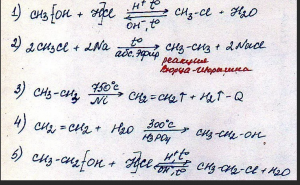 1) CH3[OH + H]Cl H+, t° ⇄ OH-, t° CH3-Cl + H2O
2) 2CH3Cl + 2Na t° → абс. эфир CH3-CH3 + 2NaCl
реакция
Вюрца-Шорыгина
3) CH3-CH3 750°C → Ni CH2=CH2↑ + H2↑ -Q
4) CH2=CH2 + H2O 300°C → H3PO4 CH3-CH2-OH
5) CH3-CH2[OH + H]Cl H+, t° ⇄ OH-, t° CH3-CH2-Cl + H2O